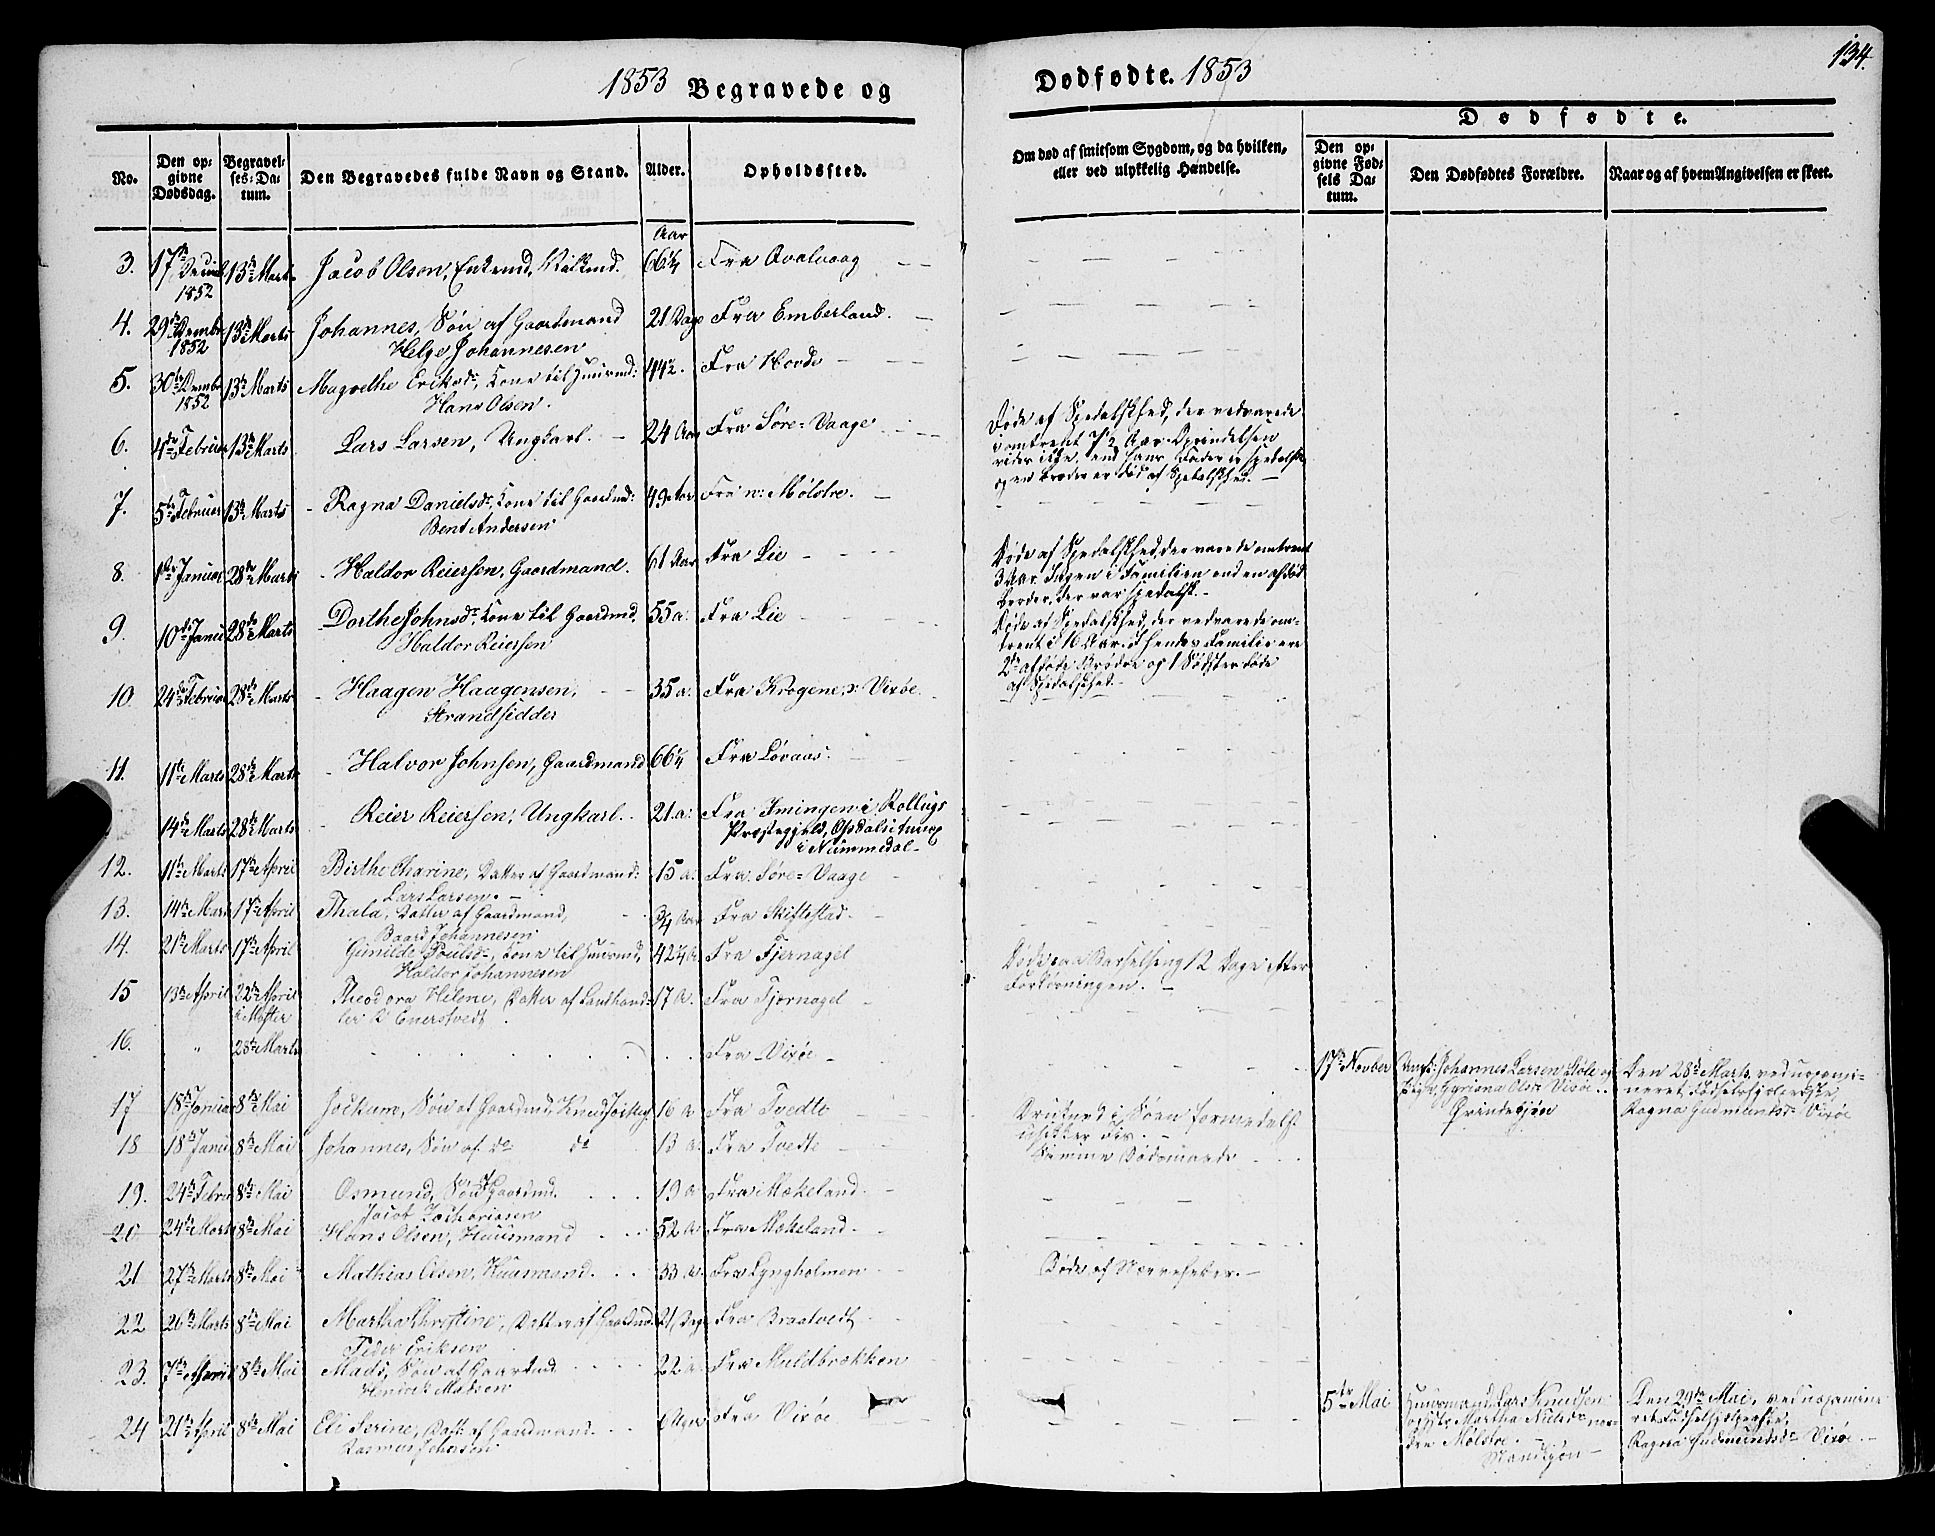 1853 Begravede og
Dødfødte. 1853
134.
No.
Den opgivne Dødsdag.
Begravelses-Datum.
Den Begravedes fulde Navn og Stand.
Alder.
Opholdssted.
Om død af smitsom Sygdom, og da hvilken,
eller ved ulykkelig Hændelse.
Dødfødte.
Den opgivne Fødsels Datum.
Den Dødfødtes Forældre.
Naar og af hvem Angivelsen er skeet.
Aar
3. 17de 1852 13de Marts Jacob Olsen, Enkemd, 66¼ Fra
4. 29de Decembr 1852 13de Marts Johannes, Søn af Gaardmand 21 Dage Fra Emberland.
Helge Johannesen
5. 30te Decembr 1852 13de Marts Magrethe Eriksdr, Kone til Huusmd: 44½. Fra Hovde
Hans Olsen.
6. 4de Februar 13de Marts Lars Larsen, Ungkarl. 24 Aar Fra Søre-Vaage
Døde af Spedalskhed, der vedvarede
i omtrent 7½ Aar. Oprindelsen
vides ikke, end hans Fader er spedalsk
og en Broder er død af Spedalskhed.
7. 5te Februar 13de Marts Ragna Danielsdr, Kone til Gaardmd: 49 Aar. Fra n: Mølstre.
Bent Andersen
8. Januar 28de Marts Haldor Reiersen, Gaardmand. 61 Aar Fra Lie
Døde af Spedalskhed, der varede omtrent
3 Aar. Ingen i Familien end en afdød
Broder, der var spedalsk.
9. 10de Januar 28de Marts Dorthe Johnsdr. Kone til Gaardmd. 55 a. Fra Lie
Haldor Reiersen
Døde af Spedalskhed, der vedvarede omtrent
i 16 Aar. I hendes Familie ere
2de afdøde Brødre og 1 Søster døde
af Spedalskhed.
10 24de Februar 28de Marts Haagen Haagensen, 35 a. Fra Krogene, p: Vixøe
Strandsidder
11. 11te Marts 28de Marts Halvor Johnsen, Gaardmand 66¼ Fra Løvaas.
14de Marts 28de Marts Reier Reiersen, Ungkarl. 21. a. Fra Imingen i Rollugs
Præstegjeld, Opdals
i Nummedal
12. 11te Marts 17de April Birthe Charine, Datter af Gaardmand: 15 a. Fra Søre-Vaage
Lars Larsen.
13. 14de Marts 17de April Thala, Datter af Gaardmand, ¾ Aar Fra Skiftestad.
Baard Johannesen
14. 21de Marts 17de April Gunilde Poulsdr, Kone til Huusmd, 42¼ a Fra Fjernagel
Haldor Johannesen
Døde paa Barselseng 12 Dage efter
Forløsningen.
15 13de April 22de April i Moster Theodora Helene, Datter af Landhandler 17 a. Fra Fjernagel
Enerstvedt
16. " 28de Marts Fra Vixøe
17de Novber Johannes Larsen Støle og
Pige, Gyriana Olsdr Vixøe.
Drindekjøn
Den 28de Marts, ved uexamineret
Fødselshjælperske,
Ragna Gudmundsdr Vixøe
17 18de Januar 8de Mai Jockum, Søn af Gaardmd, Knud 16 a Fra Tvedte
Druknede i Søen formedelst
usikker Iis.
18 18de Januar 8de Mai Johannes, Søn af do do 13 a. Fra Tvedte
Samme Dødsmaade
19. 24de Februar 8de Mai Osmund, Søn af Gaardmd. 19 a Fra Mækeland.
Jacob Zachariasen
20 24de Marts 8de Mai Hans Olsen, Huusmand 52 a. Fra Mækeland.
21 27de Marts 8de Mai Mathias Olsen, Huusmand. 33 a. Fra Lyngholmen
Døde af Nervefeber.
22 26de Marts 8de Mai Martha Christine, Datter af Gaardmd. 21 Dage Fra Braatvedt
Peder Eriksen
23. 7de April 8de Mai Mads, Søn af Gaardmd 22 a. Fra Muldbrækken
Hendrik Madsen
24 21de April 8de Mai Eli Serine, Datt. af Gaardmand Fra Vixøe
Rasmus
5te Mai Huusmand Lars Knudsen
Martha Nielsdr,
Mølstre.
Mandkjøn
Den 29de Mai, ved uexamineret
Fødselshjelperske,
Ragna Gudmundsdr Vixøe.